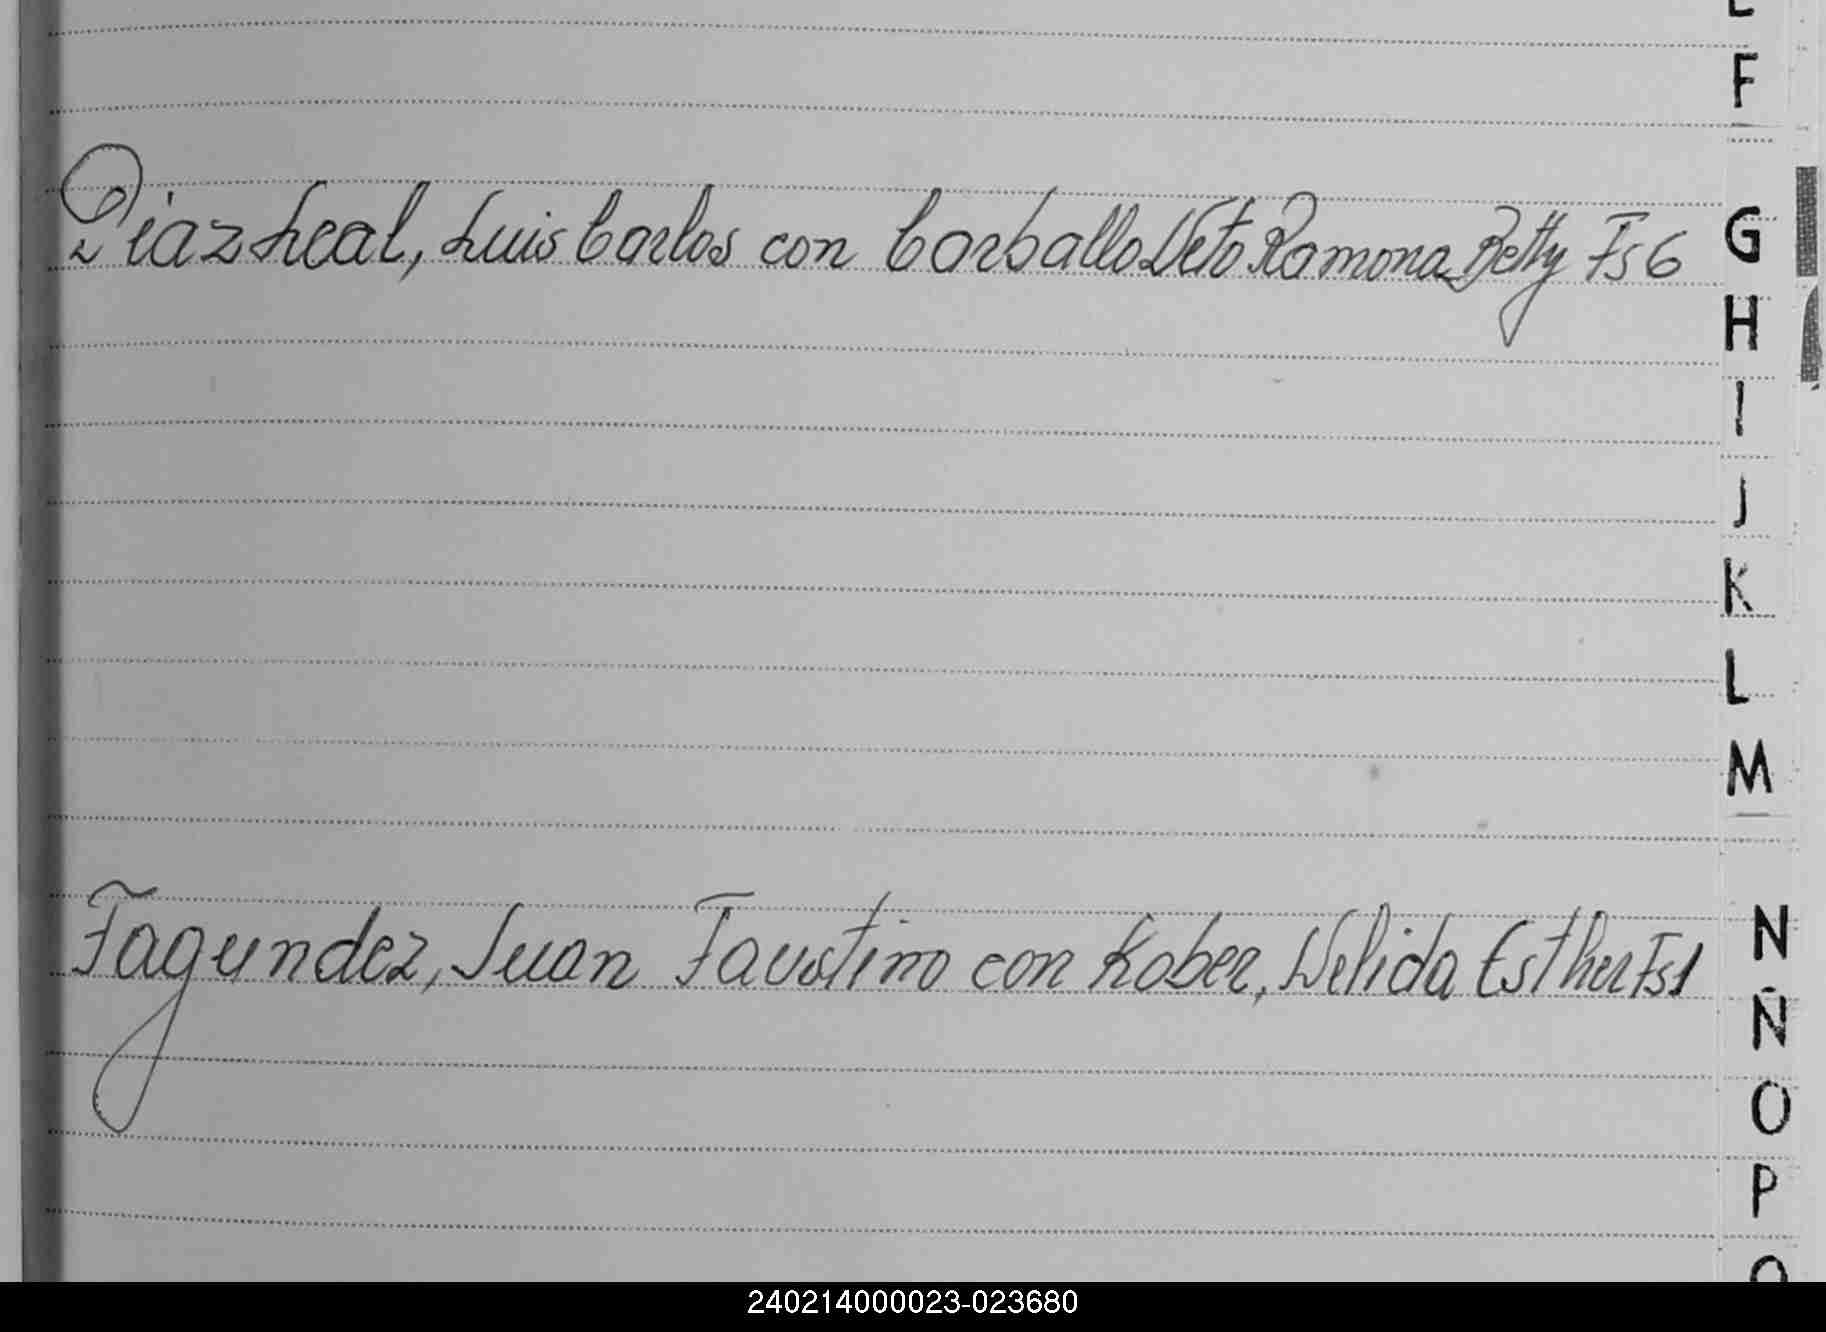 F
Diaz Leal, Luis Carlos con Carballo Neto Ramona Betty Fs 6
G
H
I
J
K
L
M
Fagundez, Juan Faustino con Kober, Nelida Esther Fs 1
N
Ñ
O
P
240214000023-023680